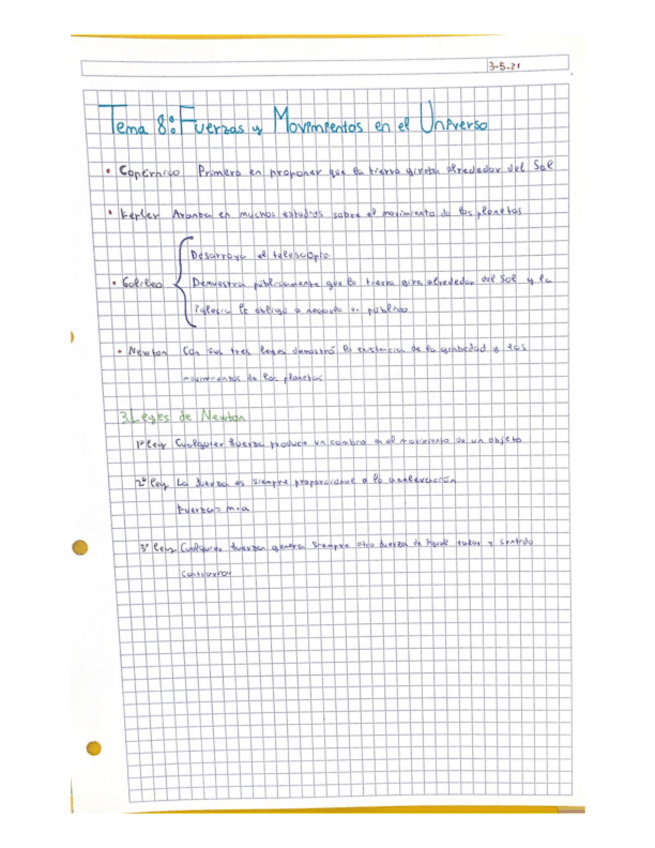 3-5-21
Tema 8: Fuerzas y Movimientos en el Universo
• Copérnico Primero en proponer que la tierra giraba alrededor del Sol
• Kepler Avanza en muchos estudios sobre el movimiento de los planetas
Desarroya el telescopio
• Galileo Demuestra públicamente que la tierra gira alrededor del Sol y la
iglesia le obligo a negarlo en publico
• Newton Con sus tres leyes demostró la existencia de la grabedad y los
movimientos de los planetas
3 Leyes de Newton
1º Ley Cualquier fuerza produce un cambio en el movimiento de un objeto
2º Ley La fuerza es siempre proporcional a la aceleración
Fuerza = m·a
3º Ley Cualquier fuerza genera siempre otra fuerza de igual valor y sentido
contrario